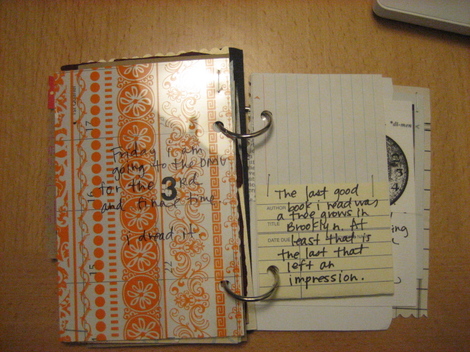 Friday i am
going to the DMV
for the 3rd
and final time
i dread it.
The last good
book i read was
a tree grows in
Brooklyn. At
least that is
the last that
left an
impression.
AUTHOR
TITLE
DATE DUE